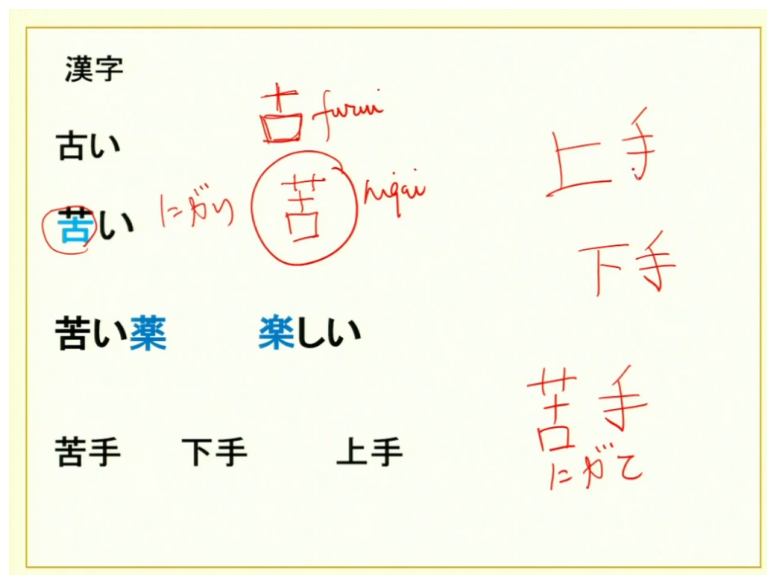 漢字
古い
苦い
苦い薬 楽しい
苦手 下手 上手
古 furui
にがい 苦 nigai
上手
下手
苦手
にがて